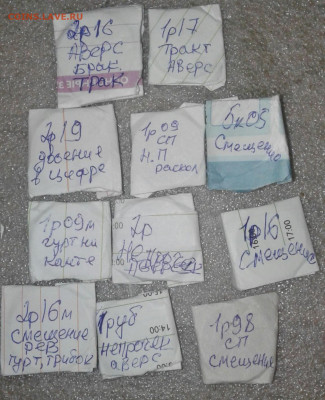 2р16
Аверс
Брак.
Трак
1р17
Тракт
Аверс
2р19
двоение
в цифре
1р09
СП
Н.П
раскол
5к03
Смещен
1р09м
гурт на
канте
2р
1р16
17:00
Смещение
2р16м
смещение
рев
гурт,
1руб
Непрочек
аверс
14:00
1р98
СП
смещение